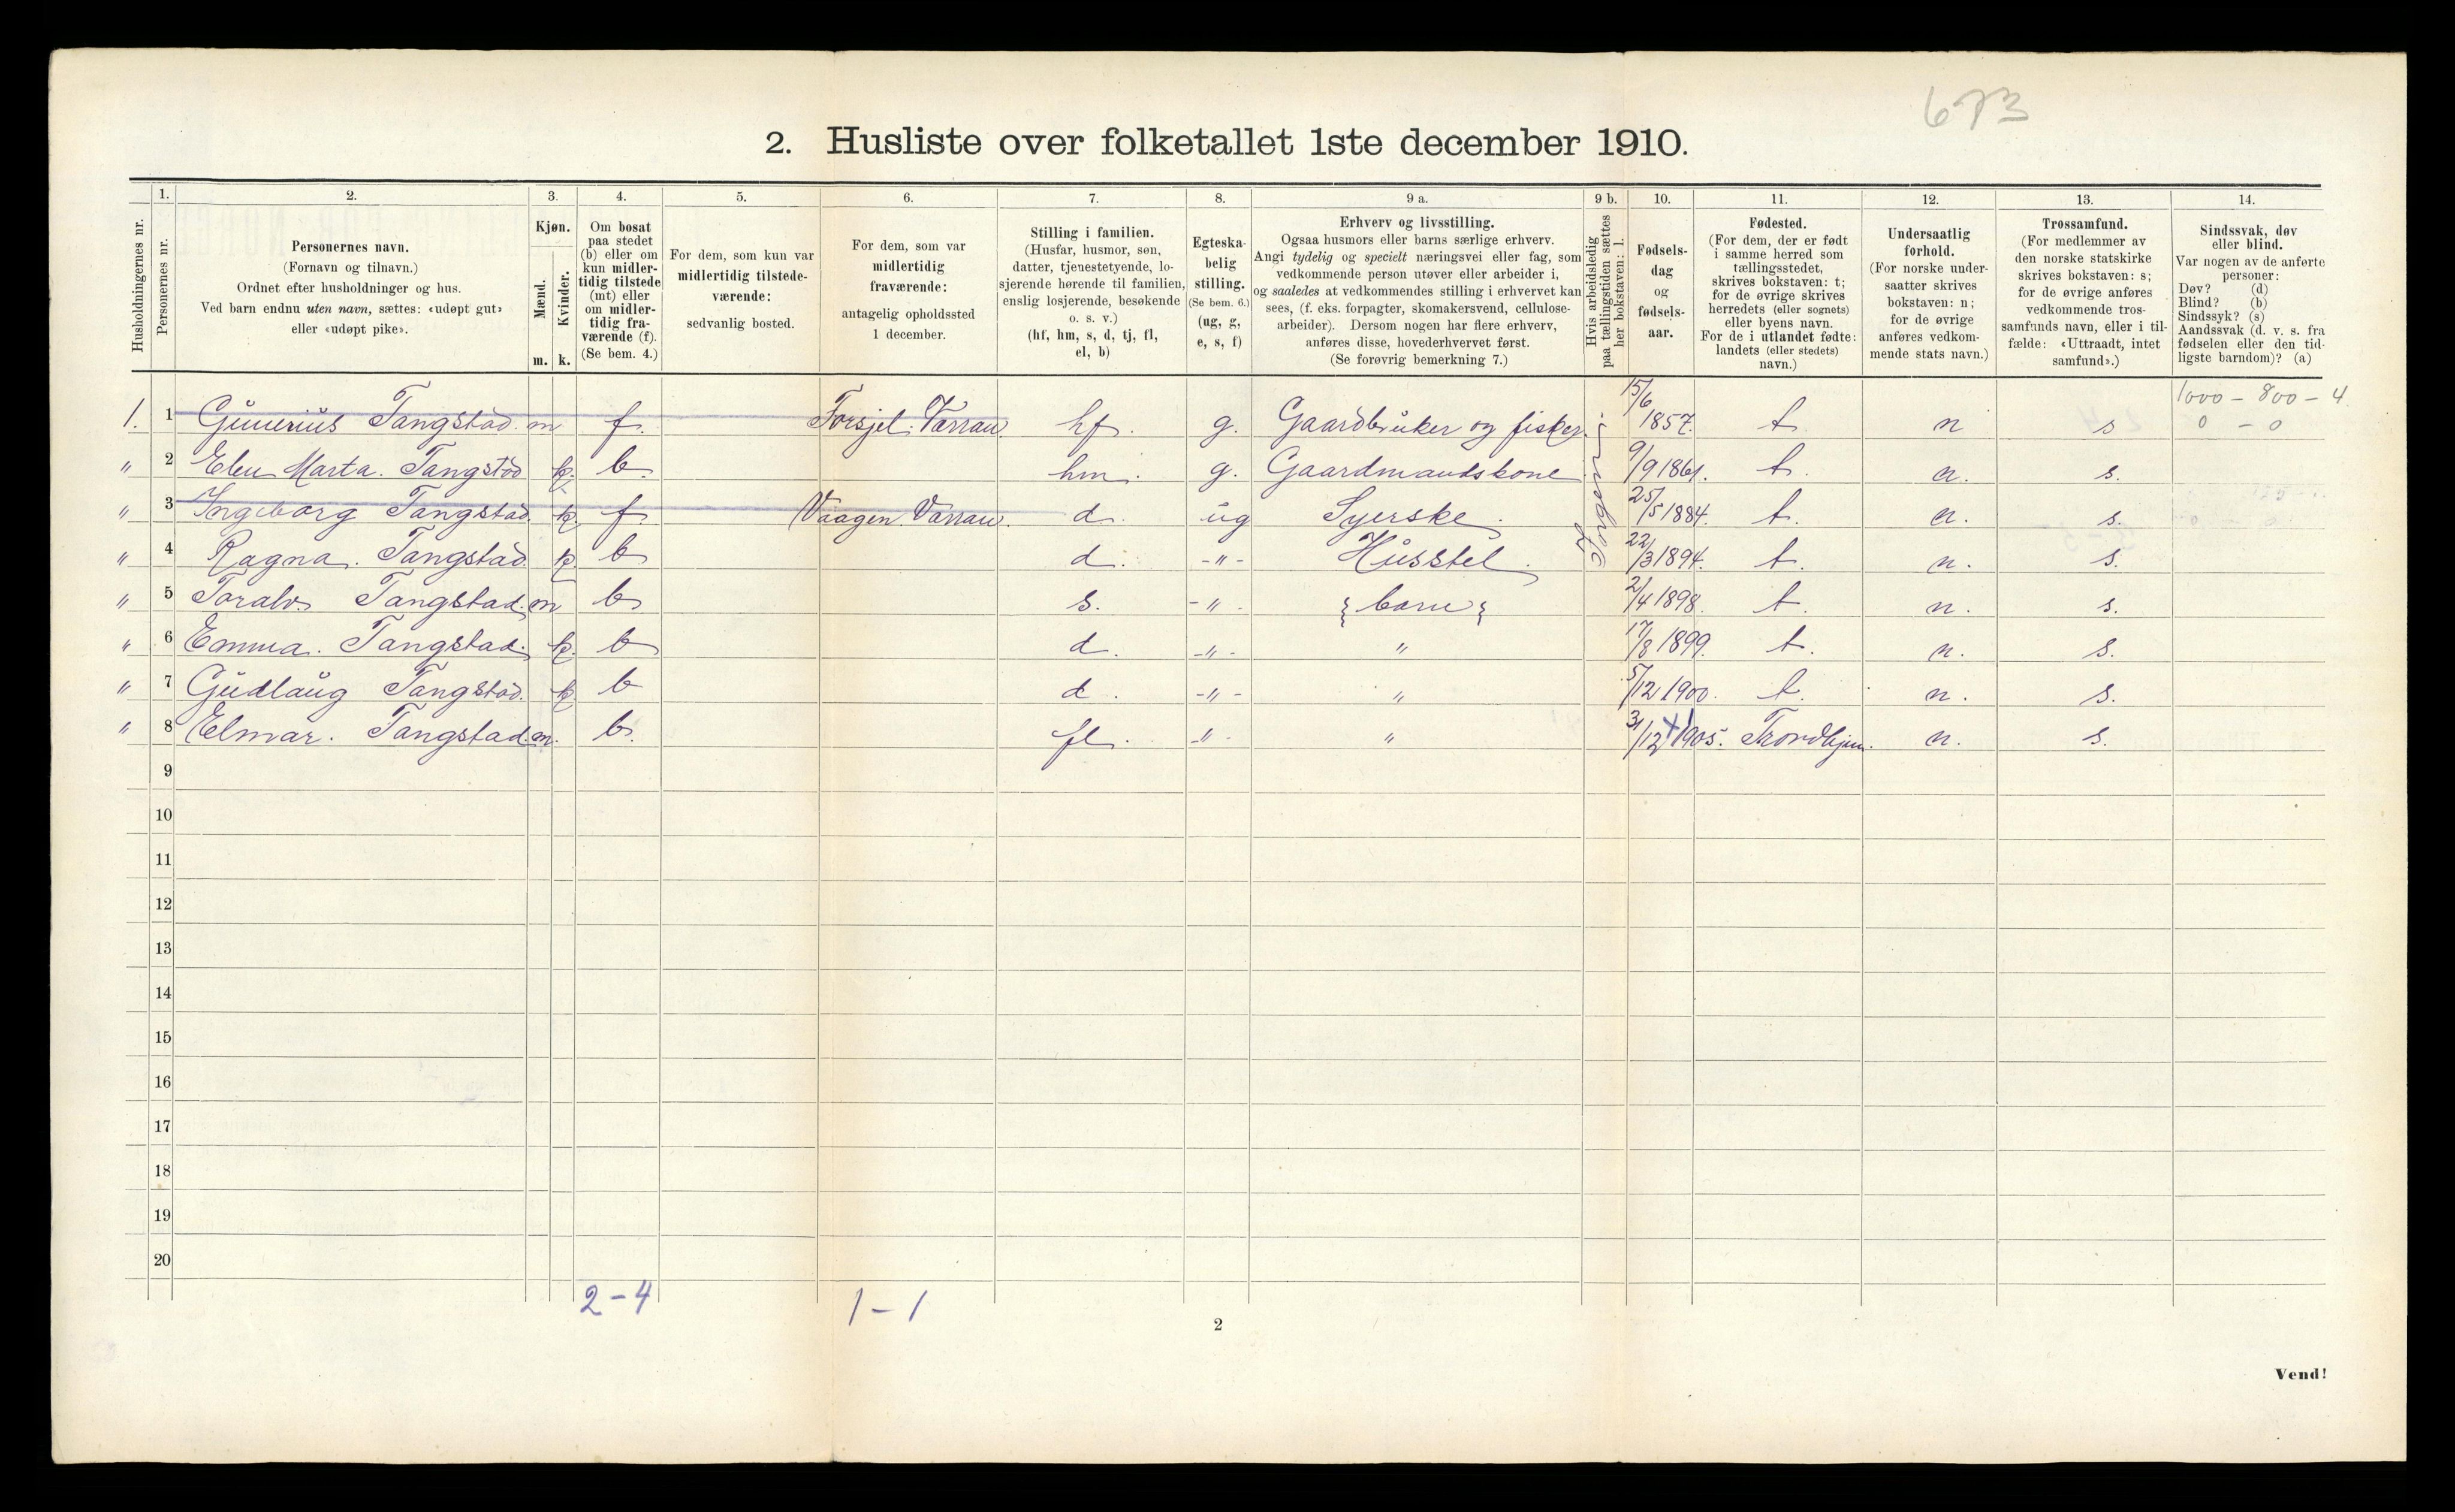 673
2. Husliste over folketallet 1ste december 1910.
Husholdningernes nr.
1.
Personernes nr.
2.
Personernes navn.
(Fornavn og tilnavn.)
Ordnet efter husholdninger og hus.
Ved barn endnu uten navn, sættes: «udøpt gut»
eller «udøpt pike».
3.
Kjøn.
Mænd.
Kvinder.
m. k.
4.
Om bosat
paa stedet
(b) eller om
kun midler-
tidig tilstede
(mt) eller
om midler-
tidig fra-
værende (f).
(Se bem. 4.)
5.
For dem, som kun var
midlertidig tilstede-
værende:
sedvanlig bosted.
6.
For dem, som var
midlertidig
fraværende:
antagelig opholdssted
1 december.
7.
Stilling i familien.
(Husfar, husmor, søn,
datter, tjenestetyende, lo-
sjerende hørende til familien,
enslig losjerende, besøkende
o. s. v.)
(hf, hm, s, d, tj, fl,
el, b)
8.
Egteska-
belig
stilling.
(Se bem. 6.)
(ug, g,
e, s, f)
9 a.
Erhverv og livsstilling.
Ogsaa husmors eller barns særlige erhverv.
Angi tydelig og specielt næringsvei eller fag, som
vedkommende person utøver eller arbeider i,
og saaledes at vedkommendes stilling i erhvervet kan
sees, (f. eks. forpagter, skomakersvend, cellulose-
arbeider). Dersom nogen har flere erhverv,
anføres disse, hovederhvervet først.
(Se forøvrig bemerkning 7.)
9 b.
Hvis arbeidsledig
paa tællingstiden sættes
her bokstaven: l.
10.
Fødsels-
dag
og
fødsels-
aar.
11.
Fødested.
(For dem, der er født
i samme herred som
tællingsstedet,
skrives bokstaven: t;
for de øvrige skrives
herredets (eller sognets)
eller byens navn.
For de i utlandet fødte:
landets (eller stedets)
navn.)
12.
Undersaatlig
forhold.
(For norske under-
saatter skrives
bokstaven: n;
for de øvrige
anføres vedkom-
mende stats navn.)
13.
Trossamfund.
(For medlemmer av
den norske statskirke
skrives bokstaven: s;
for de øvrige anføres
vedkommende tros-
samfunds navn, eller i til-
fælde: «Uttraadt, intet
samfund».)
14.
Sindssvak, døv
eller blind.
Var nogen av de anførte
personer:
Døv? (d)
Blind? (b)
Sindssyk? (s)
Aandssvak (d. v. s. fra
fødselen eller den tid-
ligste barndom)? (a)
1000 - 800 - 4
0 - 0
1. 1 Gunerius Tangstad. m f. Værran. hf. g. Gaardbruker og fisker. 15/6 1857. t n s
" 2 Tangstad k. b. hm. g. Gaardmandskone 9/9 1861. t. n. s.
" 3 Ingeborg Tangstad. k. f Vaagen Værran. d. ug Syerske. 25/5 1884. t. n. s.
" 4 Ragna. Tangstad. k. b d. -"- Husstel. 22/3 1894. t. n. s.
" 5 Toralv. Tangstad. m b s. -"- barn 2/4 1898. t. n. s.
" 6 Emma. Tangstad. k. b d. -"- " 17/8 1899. t. n. s.
" 7 Gudlaug Tangstad. k. b d. -"- " 5/12 1900. t. n. s.
" 8 Elmar. Tangstad. m. b. fl. -"- " 31/12 1905. Trondhjem. n. s.
9
10
11
12
13
14
15
16
17
18
19
20
2 - 4
1 - 1
2
Vend!